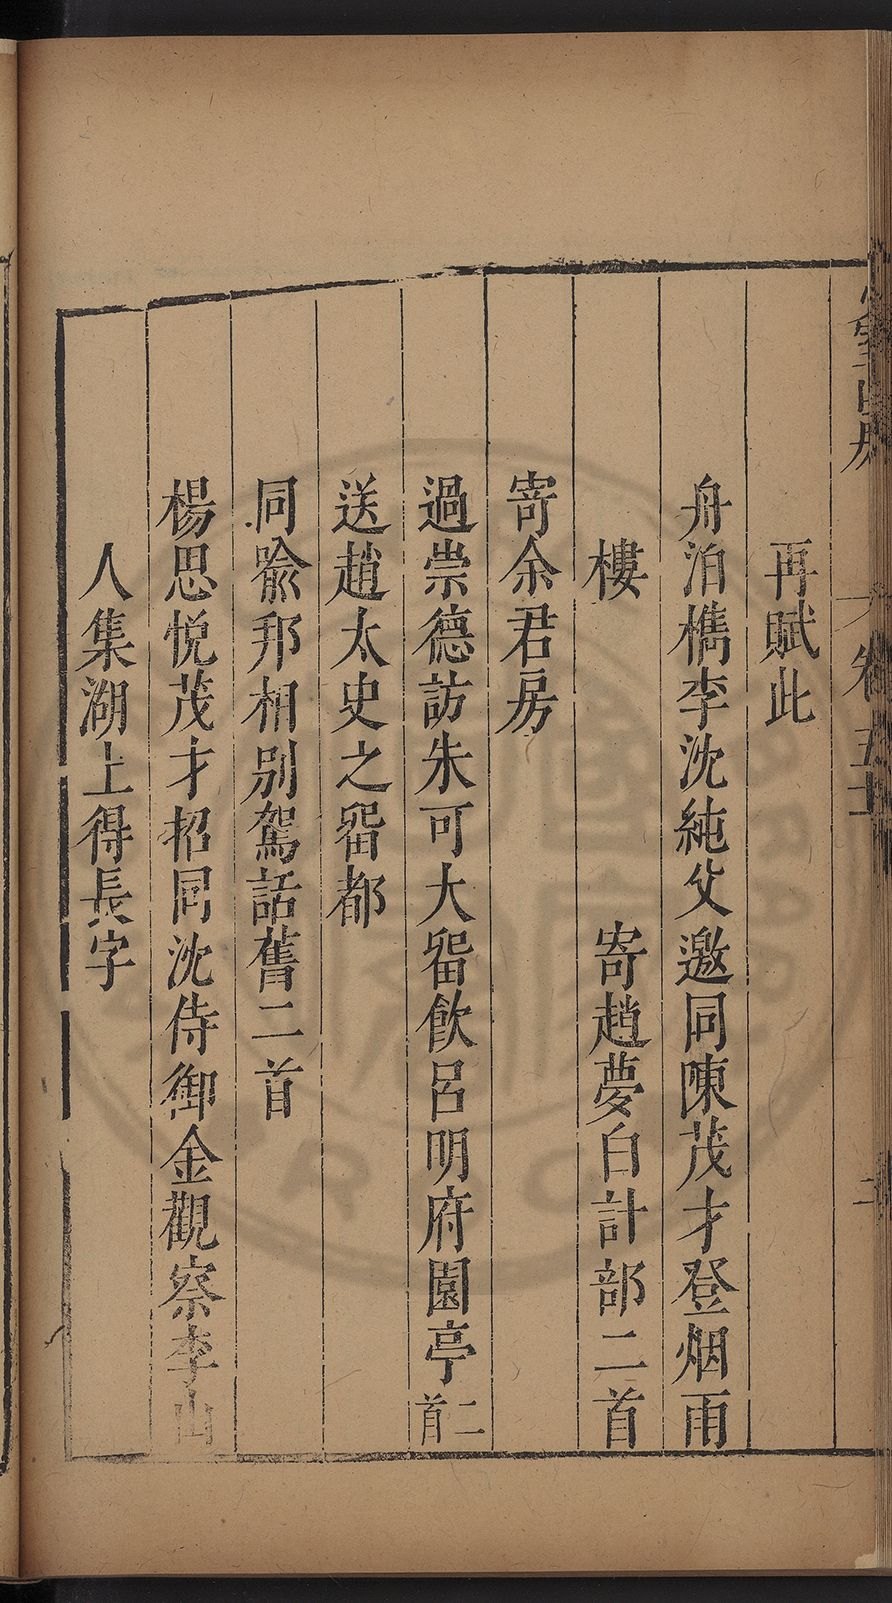 再賦此
舟泊檇李沈純父邀同陳茂才登烟雨
樓　寄趙夢白計部二首
寄余君房
過崇德訪朱可大畱飲呂明府園亭二首
送趙太史之畱都
同喩邦相別駕話舊二首
楊思悅茂才招同沈侍御金觀察李山
人集湖上得長字